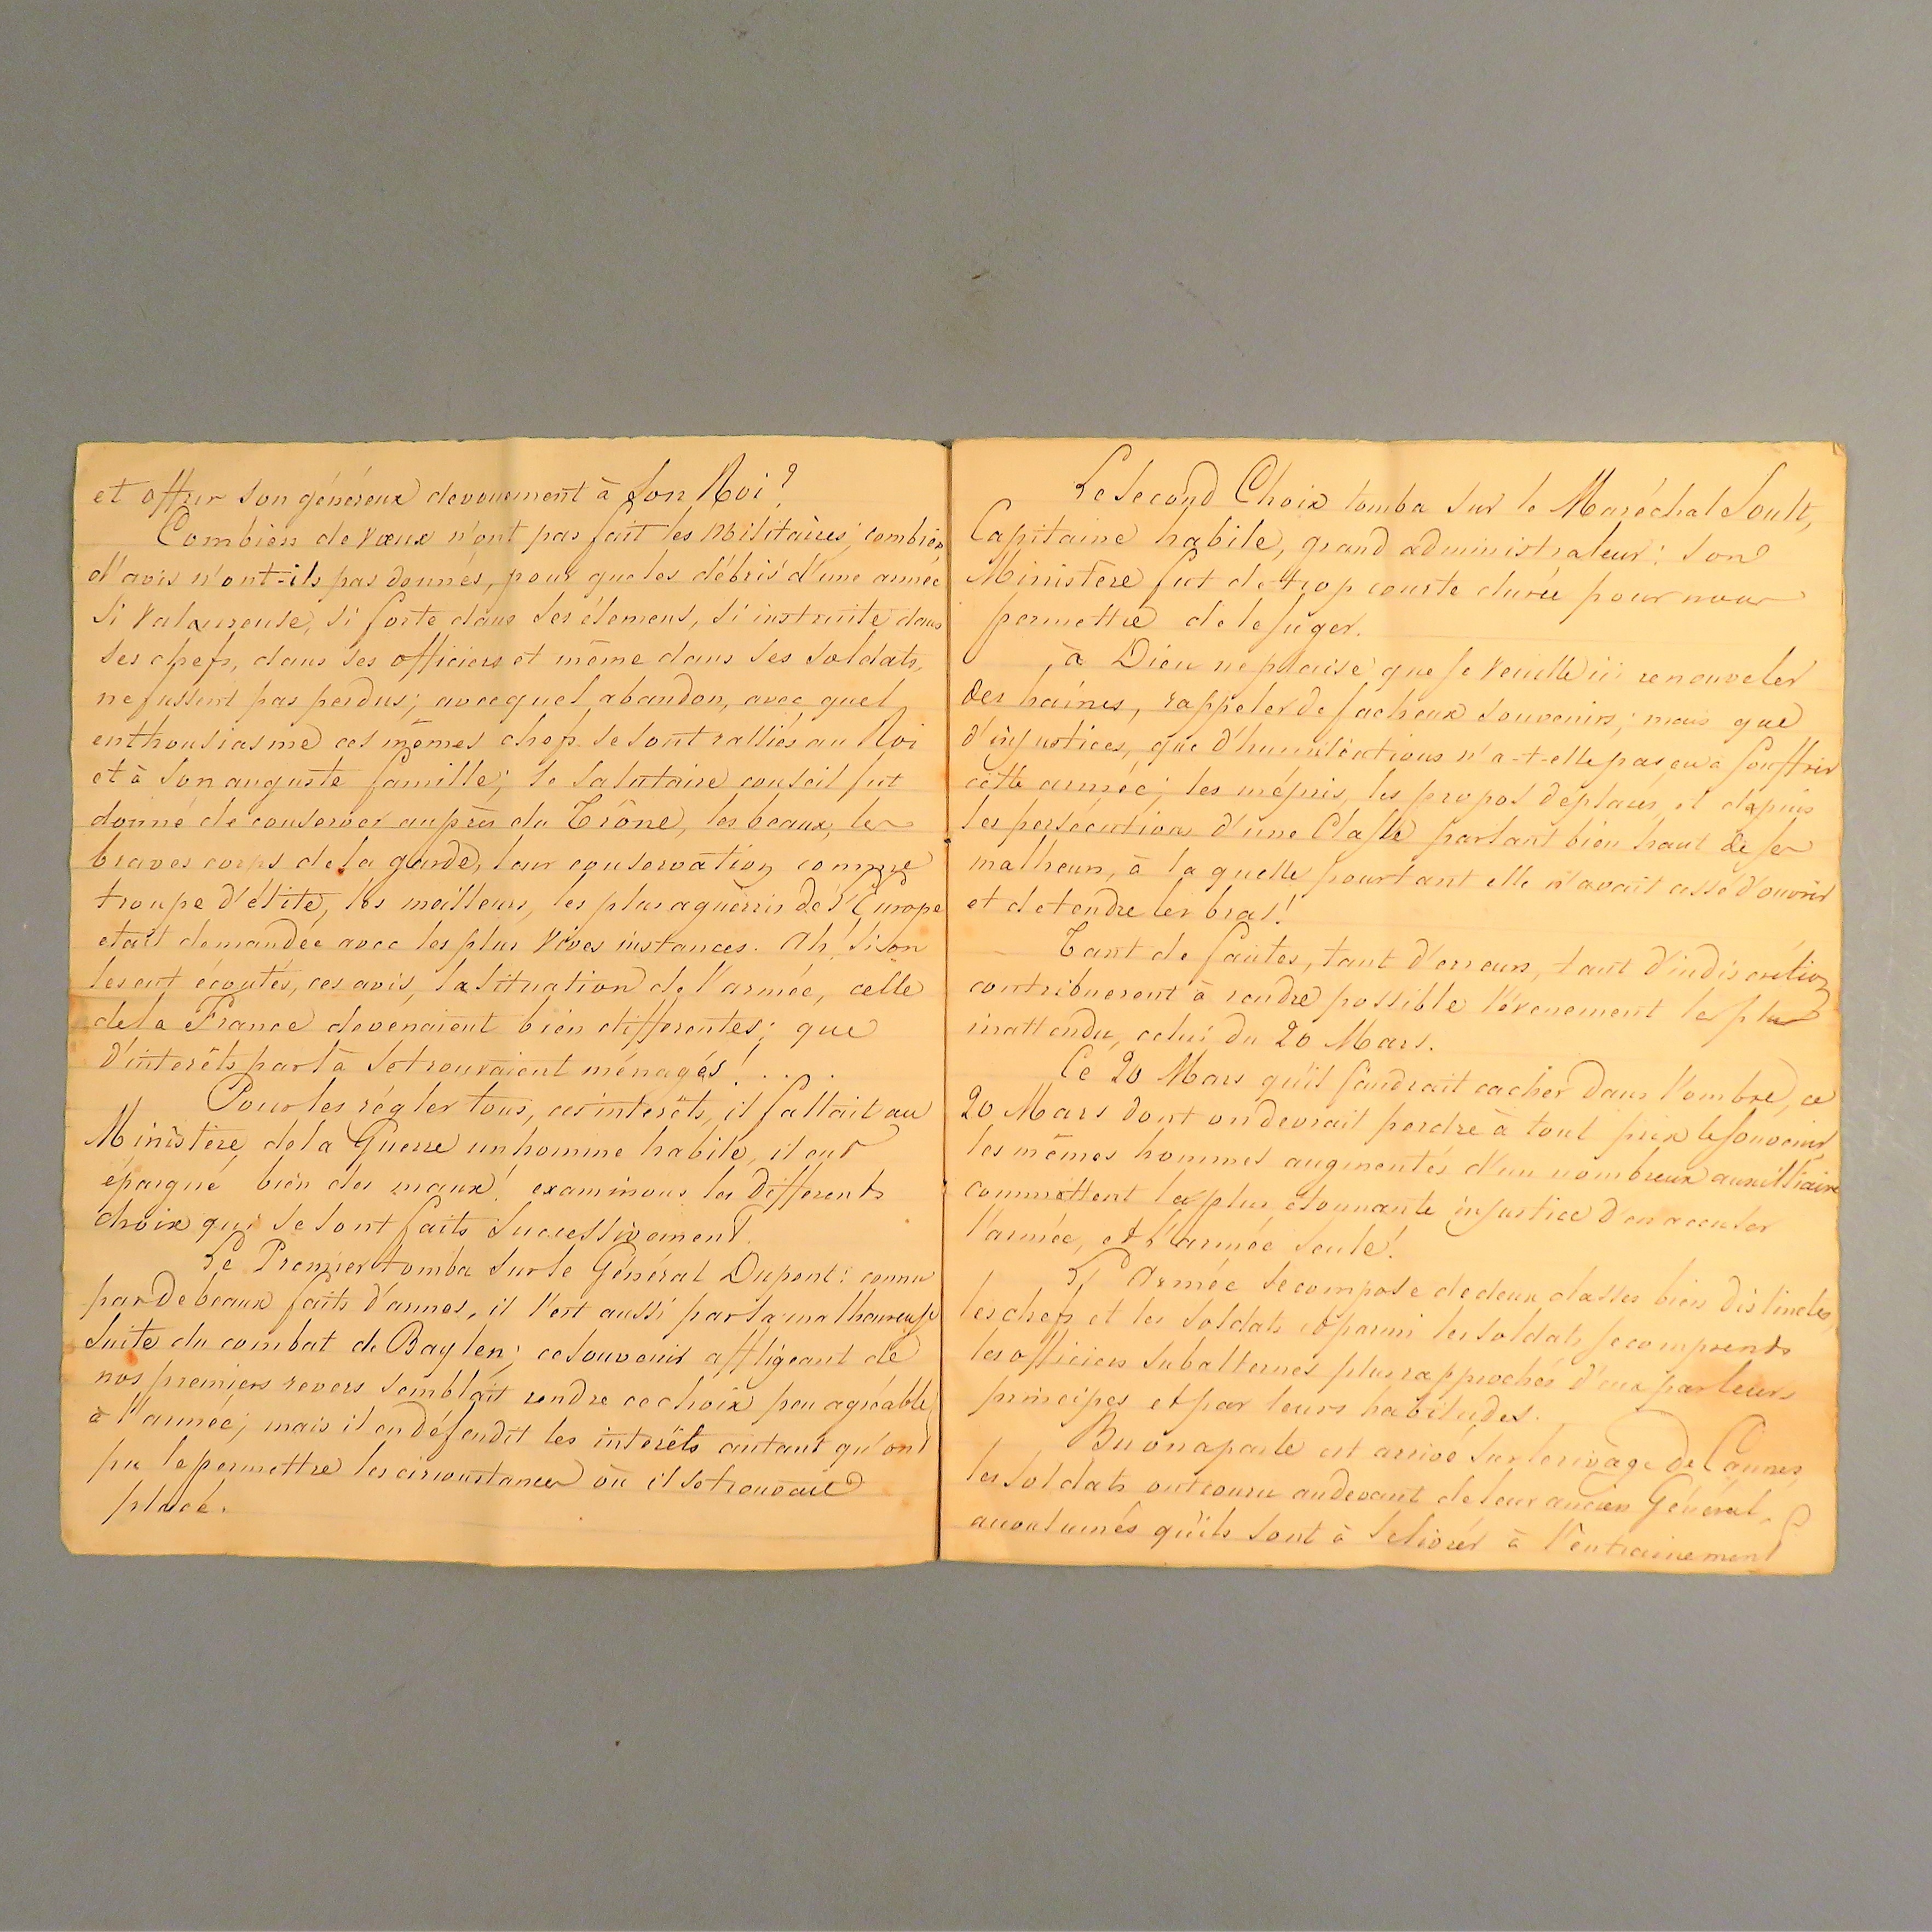 et offrir son généreux devouement à son Roi?
Combien de vœux n'ont pas fait les militaires; combien
d'avis n'ont-ils pas donnés, pour que les débris d'une armée
si valeureuse, si forte dans ses élemens, si instruite dans
ses chefs, dans ses officiers et même dans ses soldats,
ne fussent pas perdus; avec quel abandon, avec quel
enthousiasme ces mêmes chefs se sont ralliés au Roi
et à son auguste famille; le salutaire conseil fut
donné de conserver auprès du Trône, les beaux, les
braves corps de la garde, leur conservation comme
troupe d'élite, les meilleurs, les plus aguèrris de l'Europe
etait demandée avec les plus vives instances. Ah! si on
les eut écoutés, ces avis, la situation de l'armée, celle
de la France devenaient bien differentes; que
d'interêts par là se trouvaient ménagés! . . .
Pour les régler tous, ces interêts, il fallait au
Ministère de la Guerre un homme habile, il eut
épargné bien des maux! examinons les differents
choix qui se sont faits successivement.
Le Premier tomba sur le Général Dupont: connu
par de beaux faits d'armes, il l'est aussi par la malheureuse
suite du combat de Baylen; ce souvenir affligeant de
nos premiers revers semblait rendre ce choix peu agréable
à l'armée; mais il en défendit les interêts autant qu'ont
pu le permettre les circonstances où il se trouvait
placé.
Le second Choix tomba sur le Maréchal Soult,
Capitaine habile, grand administrateur: son
Ministère fut de trop courte durée pour nous
permettre de le juger.
à Dieu ne plaise que je veuille ici renouveler
des haines, rappeler de facheux souvenirs; mais que
d'injustices, que d'humiliations n'a-t-elle pas eu à souffrir
cette armée; les mépris, les propos déplacés, et depuis
les persécutions d'une Classe parlant bien haut de ses
malheurs, à laquelle pourtant elle n'avait cessé d'ouvrir
et de tendre les bras!
Tant de fautes, tant d'erreurs, tant d'indiscrétion
contribuerent à rendre possible l'évenement le plus
inattendu, celui du 20 Mars.
Ce 20 Mars qu'il faudrait cacher dans l'ombre, ce
20 Mars dont on devrait perdre à tout prix le souvenir,
les mêmes hommes augmentés d'un nombreux auxilliaire
commettent la plus étonnante injustice d'en accuser
l'armée, et l'armée seule!
L'Armée se compose de deux classes bien distinctes,
les chefs et les soldats et parmi les soldats je comprends
les officiers subalternes plus rapprochés d'eux par leurs
principes et par leurs habitudes.
Buonaparte est arrivé sur le rivage de Cannes,
les soldats ont couru audevant de leur ancien Général,
accoutumés qu'ils sont à se livrer à l'entrainement